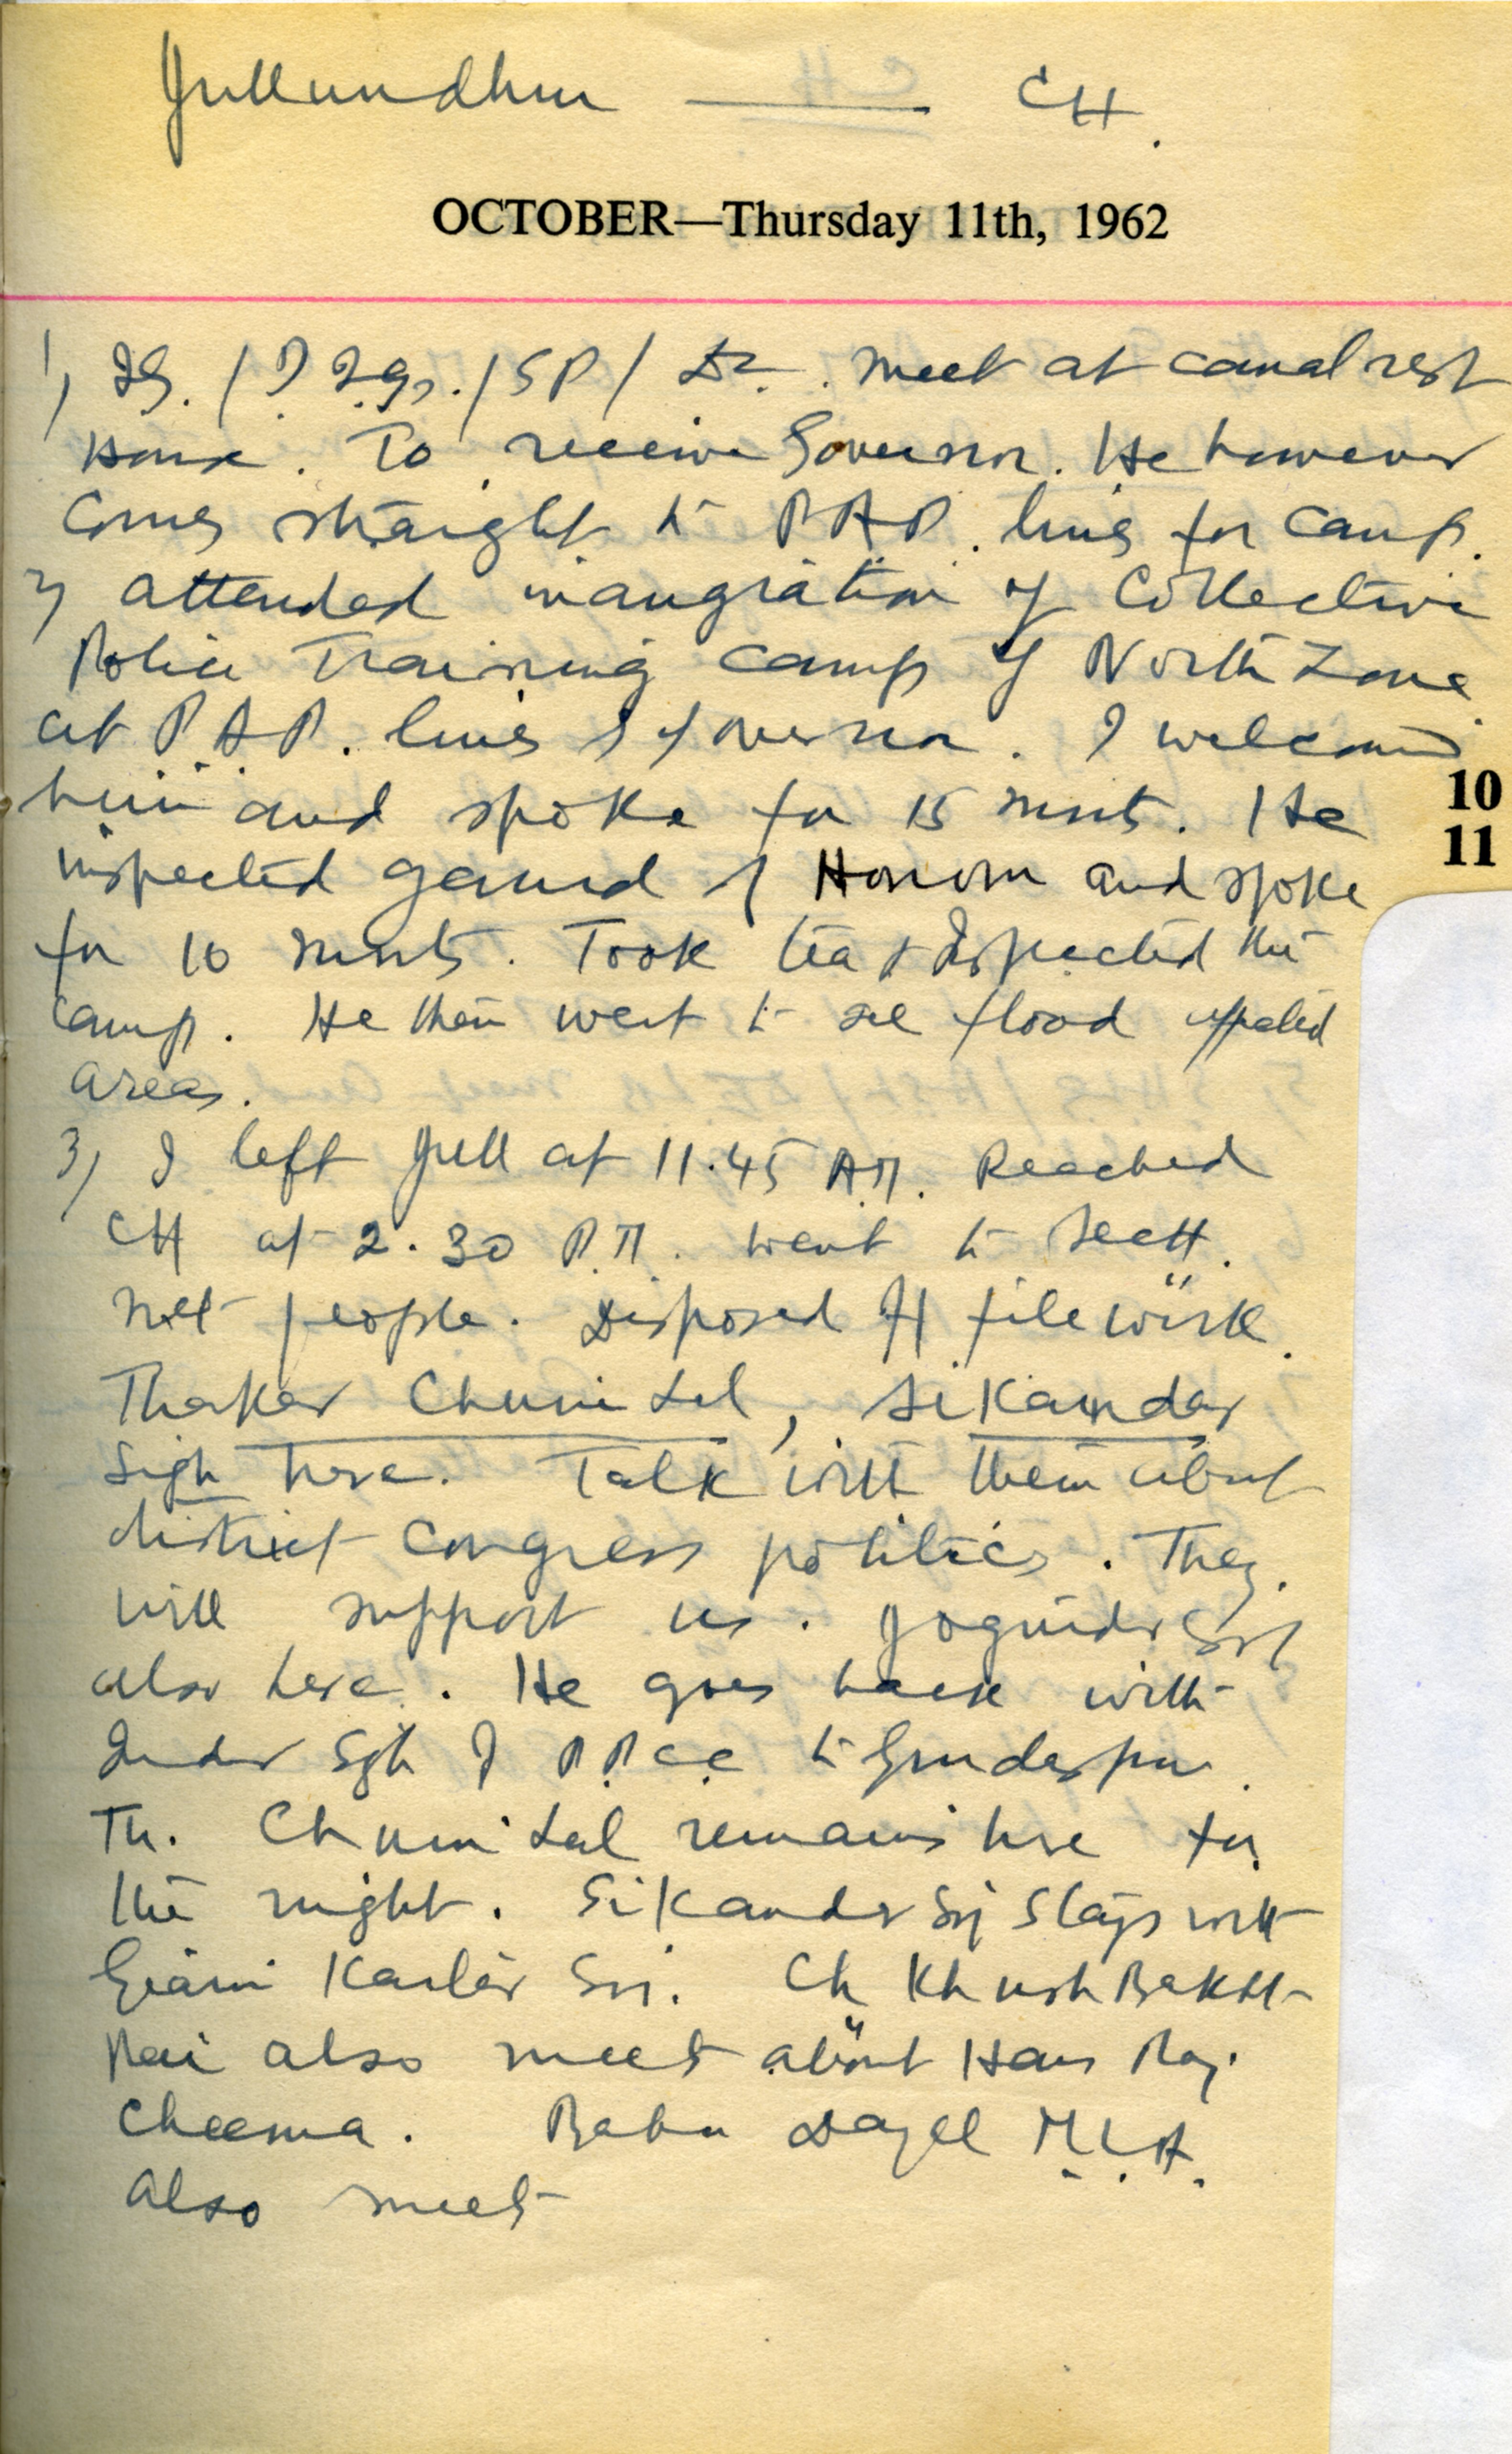 Jullundhur — CH.
OCTOBER—Thursday 11th, 1962
1) IG. / D.I.Gs. / SP / Dr. meet at canal rest
House. To receive Governor. He however
comes straight to P.A.P. lines for camp.
2) attended inaugration of Collective
Police Training camp of North Zone
at P.A.P. lines by Governor. I welcomed
him and spoke for 15 mnts. He
10
11
inspected gaurd of Honour and spoke
for 10 mnts. Took tea & Inspected the
camp. He then went to see flood effected
areas.
3) I left Jull at 11.45 A.M. Reached
CH at 2.30 P.M. went to Sectt.
Met people. Disposed off file work.
Thaker Chuni Lal, Sikandar
Sigh here. Talk with them about
district Congress politics. They
will support us. Joginder Sgh
also here. He goes back with
Inder Sgh of P.P.C.C to Gurdaspur.
Th. Chuni Lal remains here for
the night. Sikander Sgh Stays with
Giani Kartar Sgh. Ch Khush Bakht
Rai also meet about Hans Raj.
Cheema. Babu Dayal M.L.A.
also meet